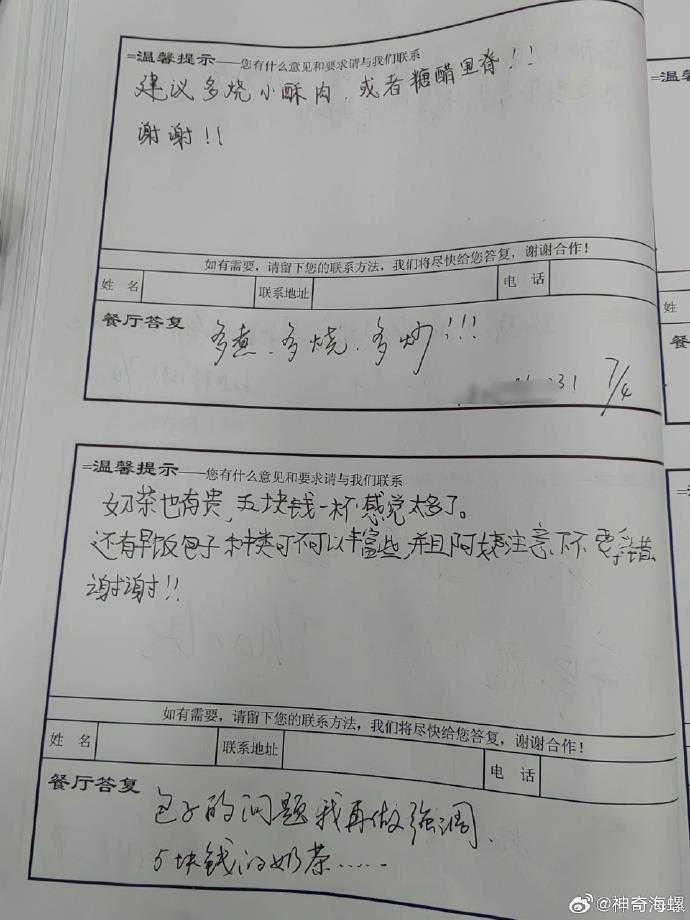 =温馨提示——您有什么意见和要求请与我们联系
建议多烧小酥肉、或者糖醋里脊!!
谢谢!!
如有需要,请留下您的联系方法,我们将尽快给您答复,谢谢合作!
姓 名 联系地址 电 话
餐厅答复
多煮、多烧、多炒!!!
31 7/4
=温馨提示——您有什么意见和要求请与我们联系
奶茶也有贵,五块钱一杯感觉太多了。
还有早饭包子种类可不可以丰富些,并且阿姨注意下不要弄错
谢谢!!
如有需要,请留下您的联系方法,我们将尽快给您答复,谢谢合作!
姓 名 联系地址 电 话
餐厅答复
包子的问题我再做强调、
5块钱的奶茶……
姓
餐
@神奇海螺